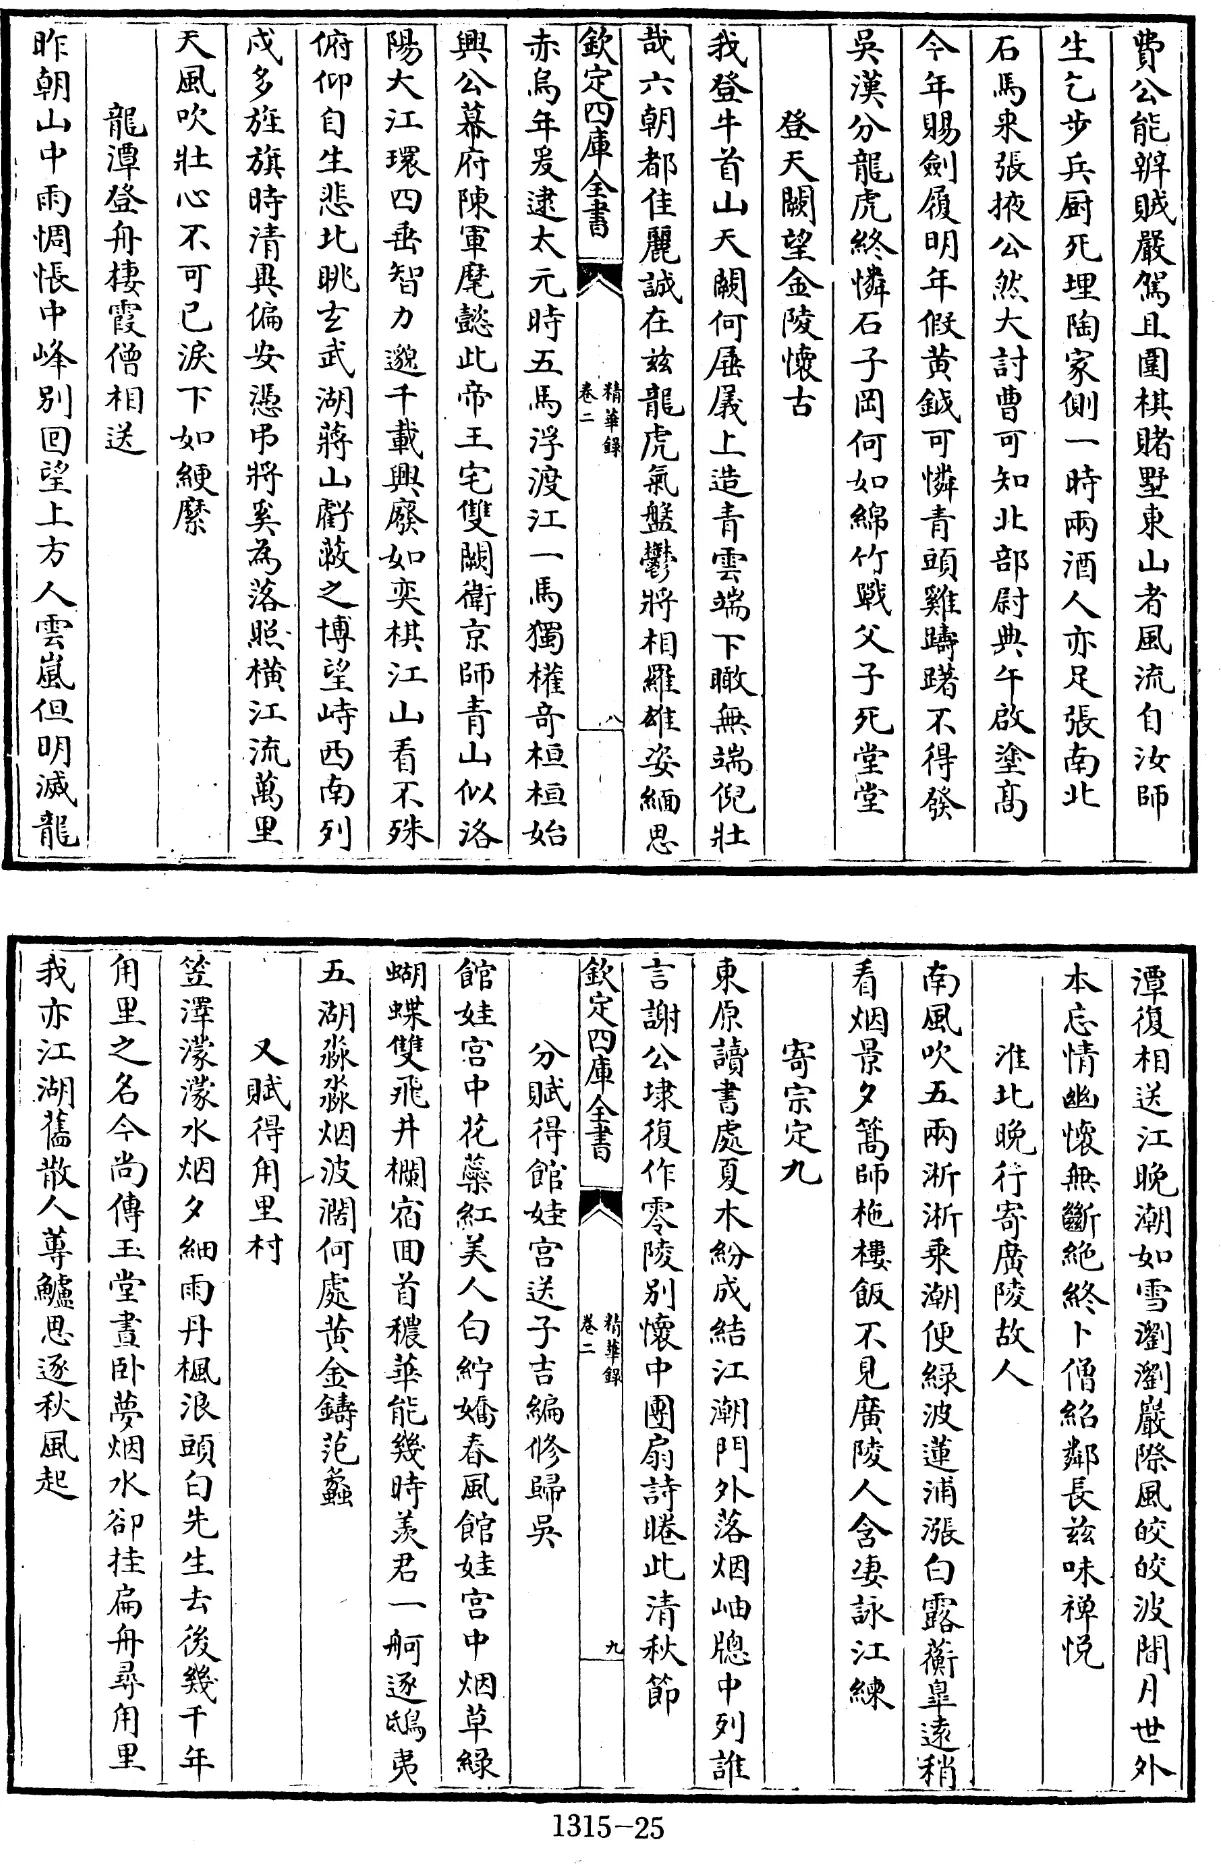 費公能辨賊嚴駕且圍棋賭墅東山者風流自汝師
生乞步兵厨死埋陶家側一時兩酒人亦足張南北
石馬来張掖公然大討曹可知北部尉典午啟塗髙
今年賜劍履明年假黄鉞可憐青頭雞躊躇不得發
吳漢分龍虎終憐石子岡何如綿竹戰父子死堂堂
登天闕望金陵懷古
我登牛首山天闕何屭屓上造青雲端下瞰無端倪壯
哉六朝都佳麗誠在兹龍虎氣盤鬱將相羅雄姿緬思
欽定四庫全書
精華録
卷二
八
赤烏年爰逮太元時五馬浮渡江一馬獨權奇桓桓始
興公幕府陳軍麾懿此帝王宅雙闕衛京師青山似洛
陽大江環四垂智力邈千載興廢如奕棋江山看不殊
俯仰自生悲北眺玄武湖蔣山虧蔽之博望峙西南列
戍多旌旗時清異偏安憑弔將奚為落照横江流萬里
天風吹壯心不可已淚下如綆縻
龍潭登舟棲霞僧相送
昨朝山中雨惆悵中峰别回望上方人雲嵐但明滅龍
潭復相送江晚潮如雪瀏瀏巖際風皎皎波間月世外
本忘情幽懷無斷絶終卜僧紹鄰長兹味禅悦
淮北晚行寄廣陵故人
南風吹五兩淅淅乘潮便緑波蓮浦漲白露蘅臯逺稍
看烟景夕篙師柂樓飯不見廣陵人含淒詠江練
寄宗定九
東原讀書處夏木紛成結江潮門外落烟岫牕中列誰
言謝公埭復作零陵别懷中團扇詩睠此清秋節
欽定四庫全書
精華録
卷二
九
分賦得館娃宫送子吉編修歸吳
館娃宫中花藥紅美人白紵嬌春風館娃宫中烟草緑
蝴蝶雙飛井欄宿囬首穠華能幾時羡君一舸逐鴟夷
五湖淼淼烟波濶何處黄金鑄范蠡
又賦得甪里村
笠澤濛濛水烟夕細雨丹楓浪頭白先生去後幾千年
甪里之名今尚傳玉堂晝卧夢烟水卻挂扁舟尋甪里
我亦江湖舊散人蓴鱸思逐秋風起
1315-25